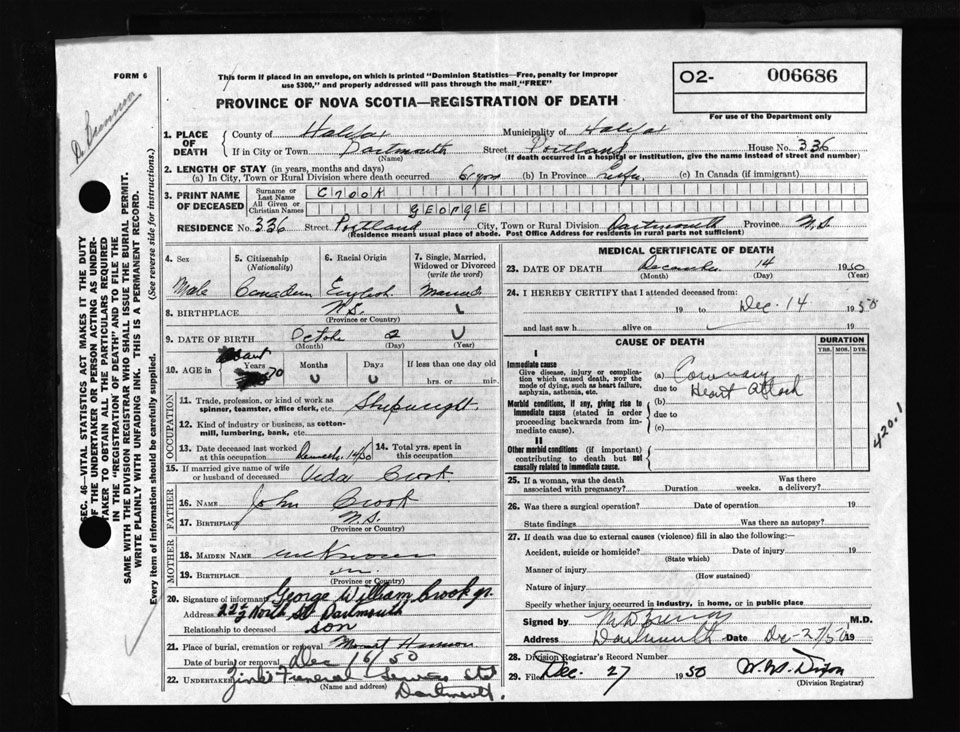 FORM 6
This form if placed in an envelope, on which is printed "Dominion Statistics—Free, penalty for improper
use $300," and properly addressed will pass through the mail "FREE"
O2- 006686
For use of the Department only
PROVINCE OF NOVA SCOTIA—REGISTRATION OF DEATH
1. PLACE OF DEATH
County of Halifax Municipality of Halifax
If in City or Town Dartmouth Street Portland House No. 336
(Name) (If death occurred in a hospital or institution, give the name instead of street and number)
2. LENGTH OF STAY (in years, months and days)
(a) In City, Town or Rural Division where death occurred (b) In Province (c) In Canada (if immigrant)
3. PRINT NAME OF DECEASED
Surname or Last Name Crook
All Given or Christian Names GEORGE
RESIDENCE No. 336 Street Portland City, Town or Rural Division Dartmouth Province N.S.
(Residence means usual place of abode. Post Office Address for residents in rural parts not sufficient)
4. Sex 5. Citizenship (Nationality) 6. Racial Origin 7. Single, Married, Widowed or Divorced (write the word)
Male Canadian English Married
8. BIRTHPLACE N.S.
(Province or Country)
9. DATE OF BIRTH October 2
(Month) (Day) (Year)
10. AGE in About Years 70 Months Days If less than one day old
hrs. or min.
OCCUPATION
11. Trade, profession, or kind of work as spinner, teamster, office clerk, etc. Shipwright.
12. Kind of industry or business, as cotton-mill, lumbering, bank, etc.
13. Date deceased last worked at this occupation 14. Total yrs. spent in this occupation
15. If married give name of wife or husband of deceased Crook.
FATHER
16. NAME John Crook
17. BIRTHPLACE N.S.
(Province or Country)
MOTHER
18. MAIDEN NAME unknown
19. BIRTHPLACE
(Province or Country)
20. Signature of informant George William Crook jr.
Address North St Dartmouth
Relationship to deceased son
21. Place of burial, cremation or removal Mount Hermon
Date of burial or removal Dec 16/50
22. UNDERTAKER Funeral
(Name and address) Dartmouth.
MEDICAL CERTIFICATE OF DEATH
23. DATE OF DEATH December 14 1950
(Month) (Day) (Year)
24. I HEREBY CERTIFY that I attended deceased from:
19 to Dec. 14 1950
and last saw h alive on 19
CAUSE OF DEATH DURATION
YRS. MOS. DYS.
I
Immediate cause
Give disease, injury or complication which caused death, NOT the mode of dying, such as heart failure, asphyxia, asthenia, etc.
(a) Coronary
due to Heart Attack
Morbid conditions, if any, giving rise to immediate cause (stated in order proceeding backwards from immediate cause).
(b)
due to
(c)
420.1
II
Other morbid conditions (if important) contributing to death but not causally related to immediate cause.
25. If a woman, was the death associated with pregnancy? Duration weeks. Was there a delivery?
26. Was there a surgical operation? Date of operation 19
State findings Was there an autopsy?
27. If death was due to external causes (violence) fill in also the following:—
Accident, suicide or homicide? Date of injury 19
(State which)
Manner of injury
(How sustained)
Nature of injury
Specify whether injury occurred in industry, in home, or in public place
Signed by M.D.
Address Dartmouth Date Dec-27/50 19
28. Division Registrar's Record Number
29. Filed Dec. 27 1950 W.W. Dixon
(Division Registrar)
SEC. 46—VITAL STATISTICS ACT MAKES IT THE DUTY
OF THE UNDERTAKER OR PERSON ACTING AS UNDER-
TAKER TO OBTAIN ALL THE PARTICULARS REQUIRED
IN THE "REGISTRATION OF DEATH" AND TO FILE THE
SAME WITH THE DIVISION REGISTRAR WHO SHALL ISSUE THE BURIAL PERMIT.
WRITE PLAINLY WITH UNFADING INK. THIS IS A PERMANENT RECORD.
Every item of information should be carefully supplied. (See reverse side for instructions.)